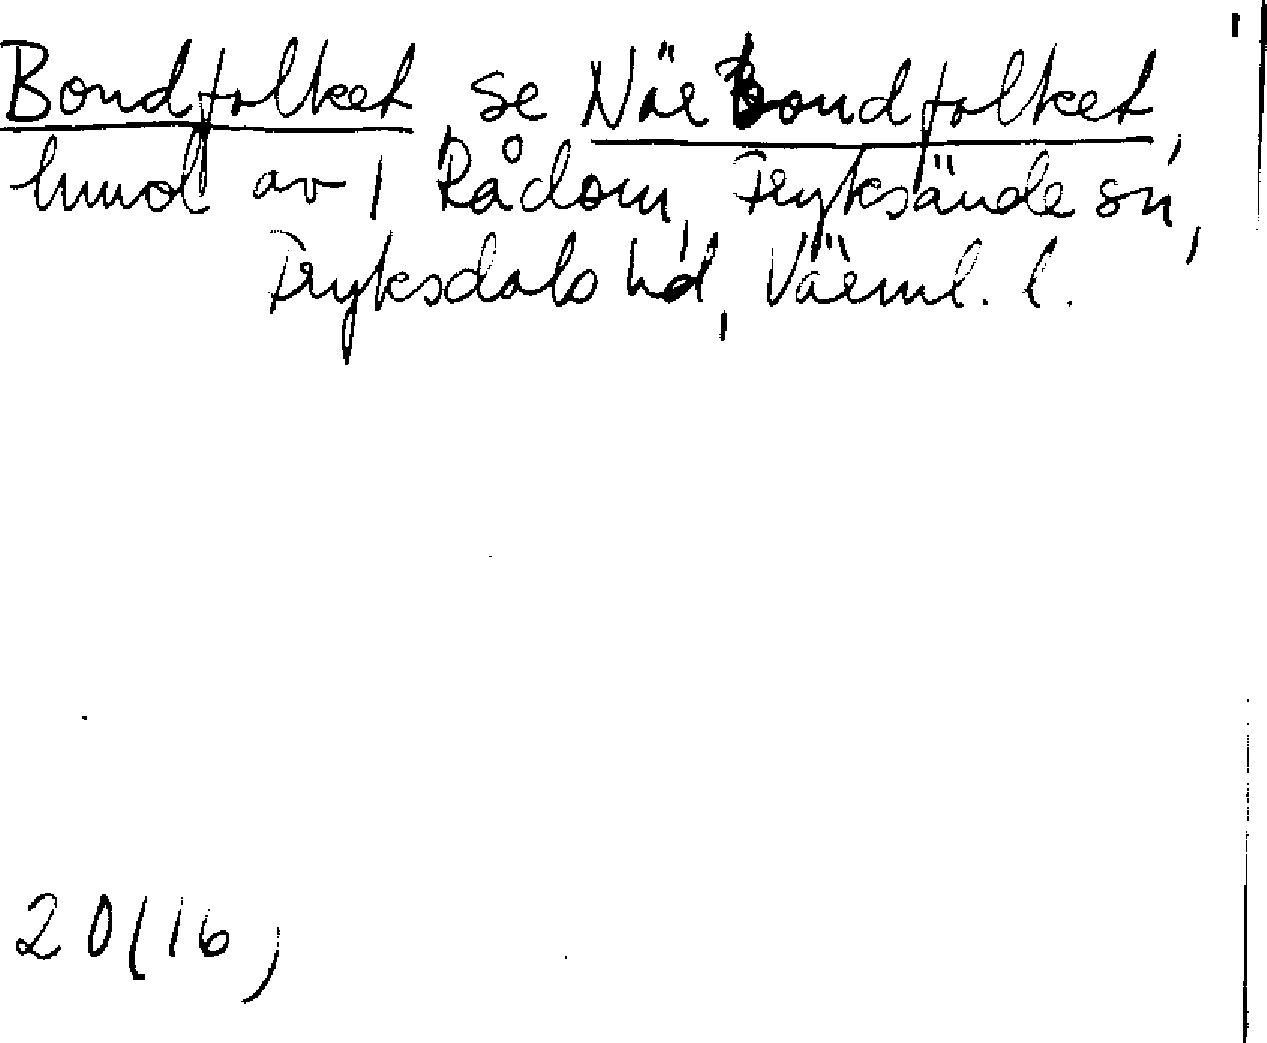 Bondfolket se När Bondfolket,
hmd av 1 Rådom, Fryksände sn,
Fryksdals hd, Värml. l.
20(16)